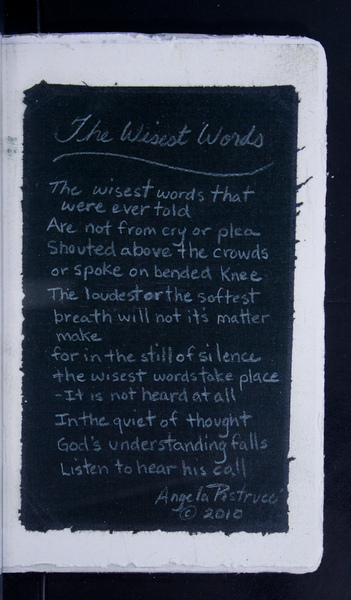 The Wisest Words
The wisest words that
were ever told
Are not from cry or plea
Shouted above the crowds
or spoke on bended Knee
The loudest or the softest
breath will not it's matter
make
for in the still of silence
the wisest words take place
-It is not heard at all
In the quiet of thought
God's understanding falls
Listen to hear his call
Angela Pistrucci
© 2010